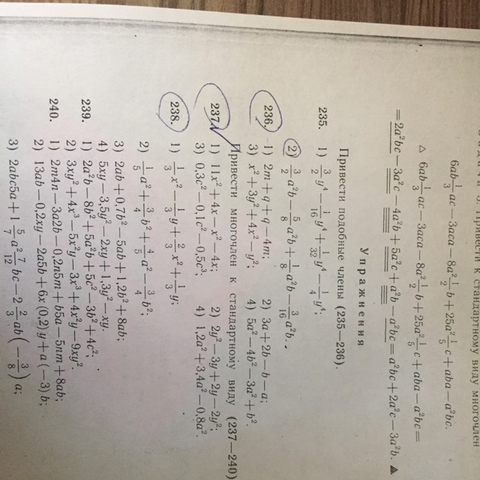 Привести к стандартному виду многочлен
6ab 1/3 ac − 3aca − 8a² 1/2 b + 25a² 1/5 c + aba − a²bc.
△ 6ab 1/3 ac − 3aca − 8a² 1/2 b + 25a² 1/5 c + aba − a²bc =
= 2a²bc − 3a²c − 4a²b + 5a²c + a²b − a²bc = a²bc + 2a²c − 3a²b. ▲
Упражнения
Привести подобные члены (235—236).
235. 1) 3/2 y⁴ − 1/16 y⁴ + 1/32 y⁴ − 1/4 y⁴;
2) 3/2 a²b − 5/8 a²b + 1/8 a²b − 3/16 a²b.
236. 1) 2m + q + q − 4m; 2) 3a + 2b − b − a;
3) x² + 3y² + 4x² − y²; 4) 5a² − 4b² − 3a² + b².
Привести многочлен к стандартному виду (237—240)
237. 1) 11x² + 4x − x² − 4x; 2) 2y² − 3y + 2y − 2y²;
3) 0,3c² − 0,1c² − 0,5c³; 4) 1,2a² + 3,4a² − 0,8a².
238. 1) 1/3 x² − 1/3 y + 2/3 x² + 1/3 y;
2) 1/5 a² + 3/4 b² + 4/5 a² − 3/4 b²;
3) 2ab + 0,7b² − 5ab + 1,2b² + 8ab;
4) 5xy − 3,5y² − 2xy + 1,3y² − xy.
239. 1) 2a²b − 8b² + 5a²b + 5c² − 3b² + 4c²;
2) 3xy² + 4x³ − 5x²y − 3x³ + 4x²y − 9xy².
240. 1) 2m4n − 3a2b − 0,2n5m + b5a − 5nm + 8ab;
2) 13ab − 0,2xy − 2a5b + 6x (0,2) y + a (−3) b;
3) 2abc5a + 1 5/7 a² 7/12 bc − 2 2/3 ab (− 3/8) a;